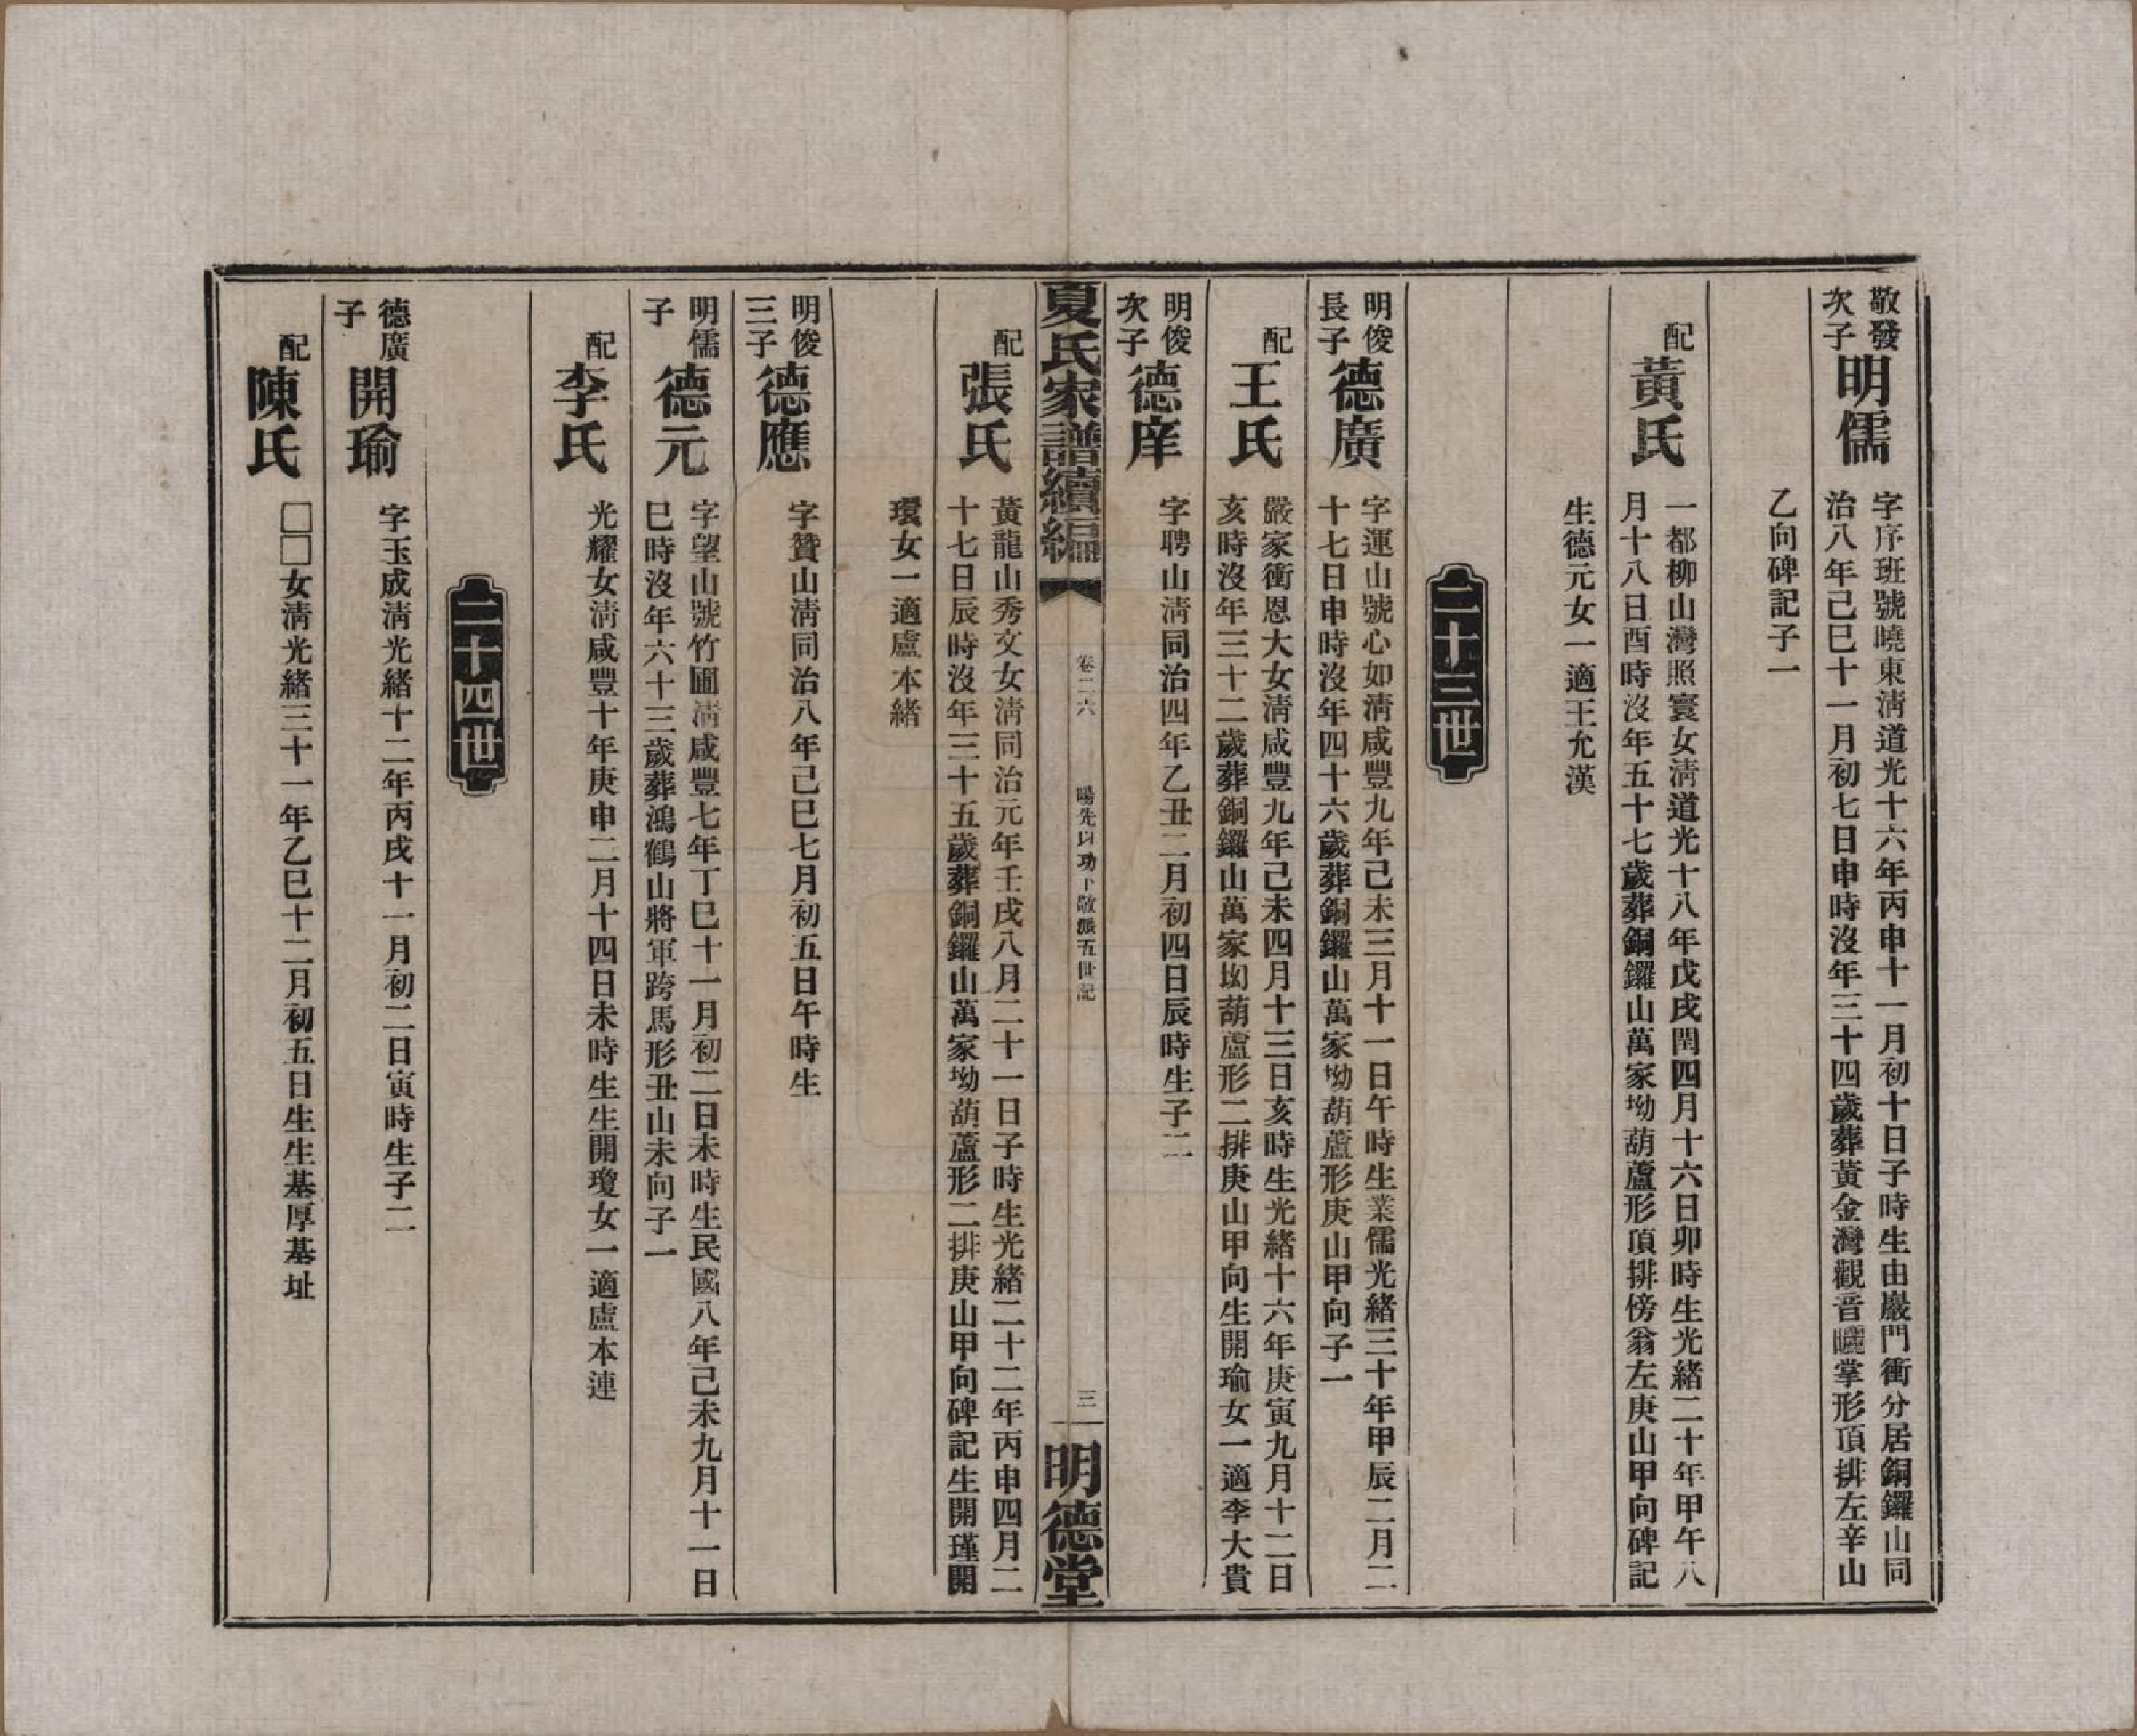 敬發
次子
明儒
字序班號曉東淸道光十六年丙申十一月初十日子時生由巖門衝分居銅鑼山同
治八年己巳十一月初七日申時沒年三十四歲葬黃金灣觀音曬掌形頂排左辛山
乙向碑記子一
配
黃氏
一都柳山灣照寰女淸道光十八年戊戌閏四月十六日卯時生光緒二十年甲午八
月十八日酉時沒年五十七歲葬銅鑼山萬家坳葫蘆形頂排傍翁左庚山甲向碑記
生德元女一適王允漢
二十三世
明俊
長子
德廣
字運山號心如淸咸豐九年己未三月十一日午時生業儒光緒三十年甲辰二月二
十七日申時沒年四十六歲葬銅鑼山萬家坳葫蘆形庚山甲向子一
配
王氏
嚴家衝恩大女淸咸豐九年己未四月十三日亥時生光緒十六年庚寅九月十二日
亥時沒年三十二歲葬銅鑼山萬家坳葫蘆形二排庚山甲向生開瑜女一適李大貴
明俊
次子
德庠
字聘山淸同治四年乙丑二月初四日辰時生子二
夏氏家譜續編
卷二六
暘先以功下敬派五世記
三
明德堂
配
張氏
黃龍山秀文女淸同治元年壬戌八月二十一日子時生光緒二十二年丙申四月二
十七日辰時沒年三十五歲葬銅鑼山萬家坳葫蘆形二排庚山甲向碑記生開瑾開
環女一適盧本緒
明俊
三子
德應
字贊山淸同治八年己巳七月初五日午時生
明儒
子
德元
字望山號竹圃淸咸豐七年丁巳十一月初二日未時生民國八年己未九月十一日
巳時沒年六十三歲葬鴻鶴山將軍跨馬形丑山未向子一
配
李氏
光耀女淸咸豐十年庚申二月十四日未時生生開瓊女一適盧本連
二十四世
德廣
子
開瑜
字玉成淸光緒十二年丙戌十一月初二日寅時生子二
配
陳氏
□□女淸光緒三十一年乙巳十二月初五日生生基厚基址